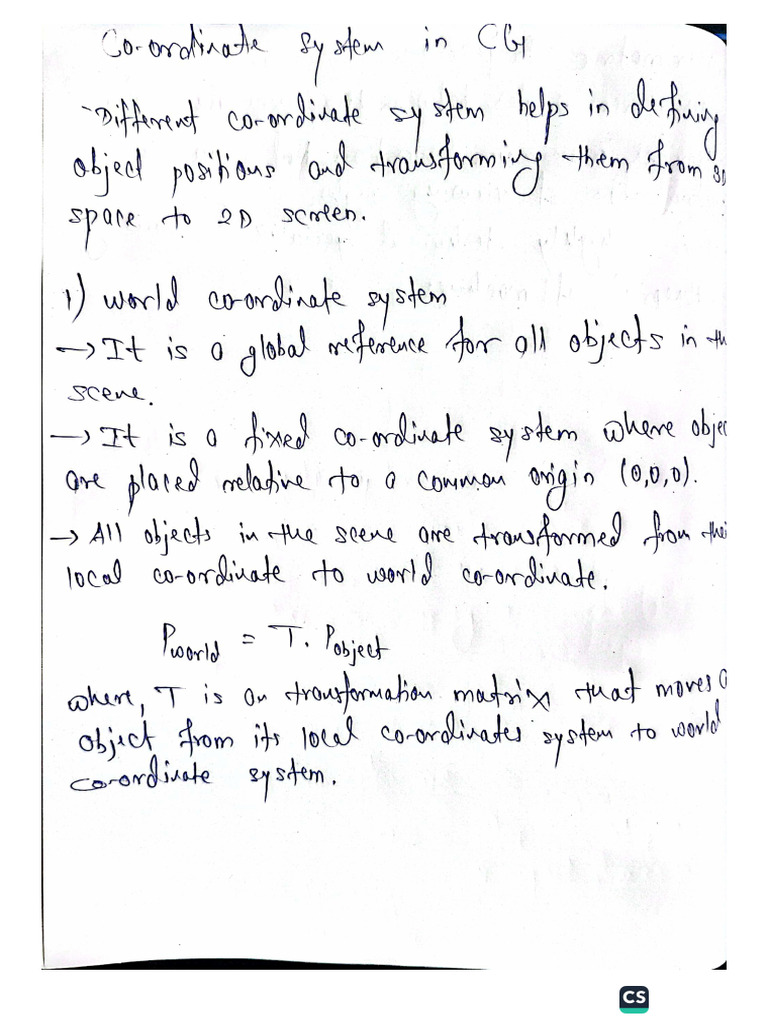 Co-ordinate system in CG
-Different co-ordinate system helps in defining
object positions and transforming them from 3D
space to 2D screen.
1) world co-ordinate system
→ It is a global reference for all objects in th
scene.
→ It is a fixed co-ordinate system where objec
are placed relative to a common origin (0,0,0).
→ All objects in the scene are transformed from thei
local co-ordinate to world co-ordinate.
Pworld = T. Pobject
where, T is an transformation matrix that moves a
object from its local co-ordinates system to world
co-ordinate system.
CS